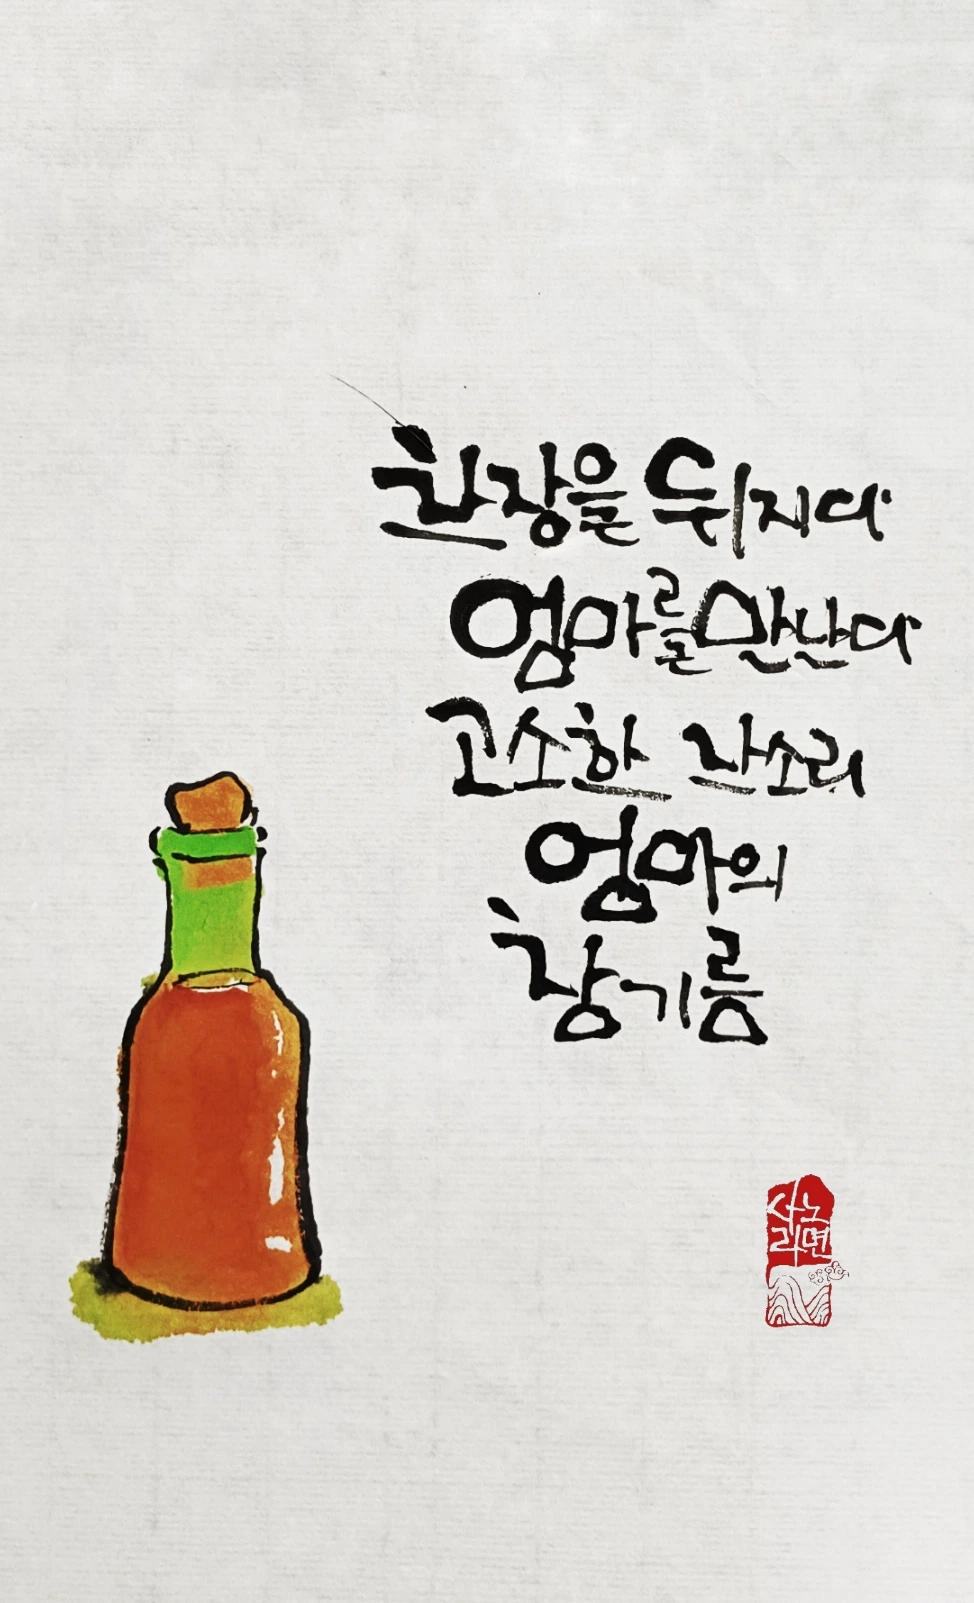 찬장을 뒤지다
엄마를 만난다
고소한 잔소리
엄마의
참기름
사노
라면